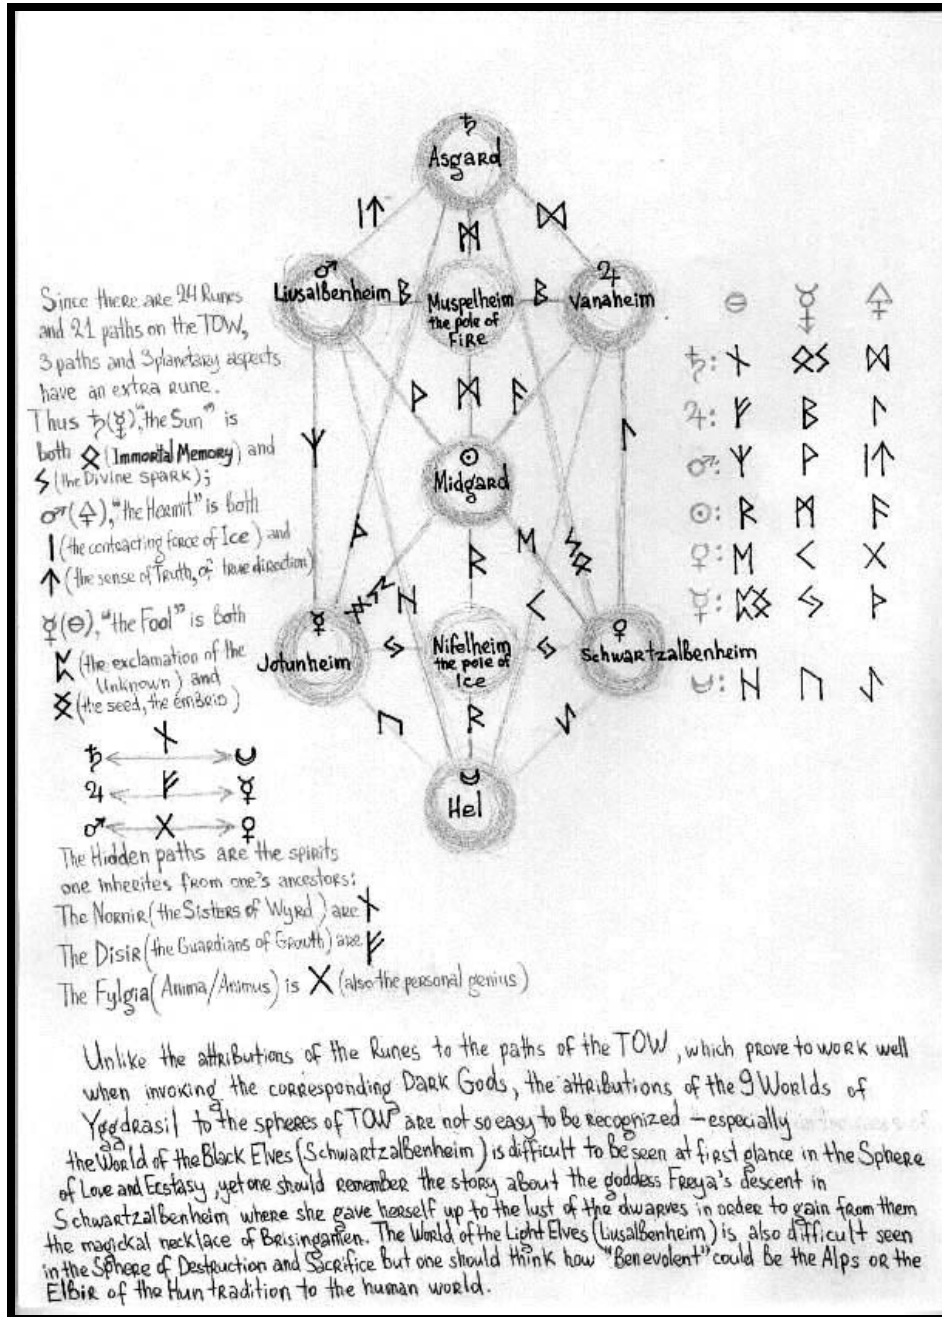 ♄
Asgard
ᛁᛏ
ᛗ
ᛞ
♂
♃
Liusalbenheim
ᛒ
Muspelheim
the pole of
Fire
ᛒ
Vanaheim
ᚹ
ᛗ
ᚨ
ᛉ
ᛚ
☉
Midgard
ᚦ
ᚱ
ᛖ
ᛊ
ᚺ
ᚲ
☿
♀
Jotunheim
Nifelheim
the pole of
Ice
Schwartzalbenheim
ᚢ
ᚱ
Hel
Since there are 24 Runes
and 21 paths on the TOW,
3 paths and 3 planetary aspects
have an extra rune.
Thus ♄(☿), "the Sun" is
both ᛟ (Immortal Memory) and
ᛊ (the Divine spark);
♂(🜍), "the Hermit" is both
ᛁ (the contracting force of Ice) and
ᛏ (the sense of Truth, of true direction)
☿(⊖), "the Fool" is both
ᛈ (the exclamation of the
Unknown) and
ᛝ (the seed, the émbrio)
♄ ᚾ
♃ ᚠ ☿
♂ ᚷ ♀
The Hidden paths are the spirits
one inherites from one's ancestors:
The Nornir (the Sisters of Wyrd) are ᚾ
The Disir (the Guardians of Growth) are ᚠ
The Fylgia (Anima/Animus) is ᚷ (also the personal genius)
⊖ ☿ 🜍
♄: ᚾ ᛟᛊ ᛞ
♃: ᚠ ᛒ ᛚ
♂: ᛉ ᚹ ᛁᛏ
☉: ᚱ ᛗ ᚨ
♀: ᛖ ᚲ ᚷ
☿: ᛈᛝ ᛃ ᚦ
ᚺ ᚢ ᛇ
Unlike the attributions of the Runes to the paths of the TOW, which prove to work well
when invoking the corresponding Dark Gods, the attributions of the 9 Worlds of
Yggdrasil to the spheres of TOW are not so easy to be recognized – especially
the World of the Black Elves (Schwartzalbenheim) is difficult to be seen at first glance in the Sphere
of Love and Ecstasy, yet one should remember the story about the goddess Freya's descent in
Schwartzalbenheim where she gave herself up to the lust of the dwarves in order to gain from them
the magickal necklace of Brisingamen. The World of the Light Elves (Liusalbenheim) is also difficult seen
in the Sphere of Destruction and Sacrifice but one should think how "Benevolent" could be the Alps or the
Elbir of the Hun tradition to the human world.